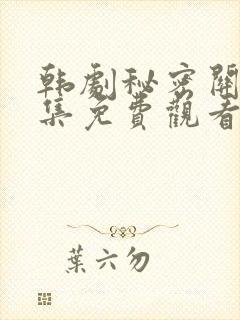 韩劇秘密關
集免費觀看
葉六勿